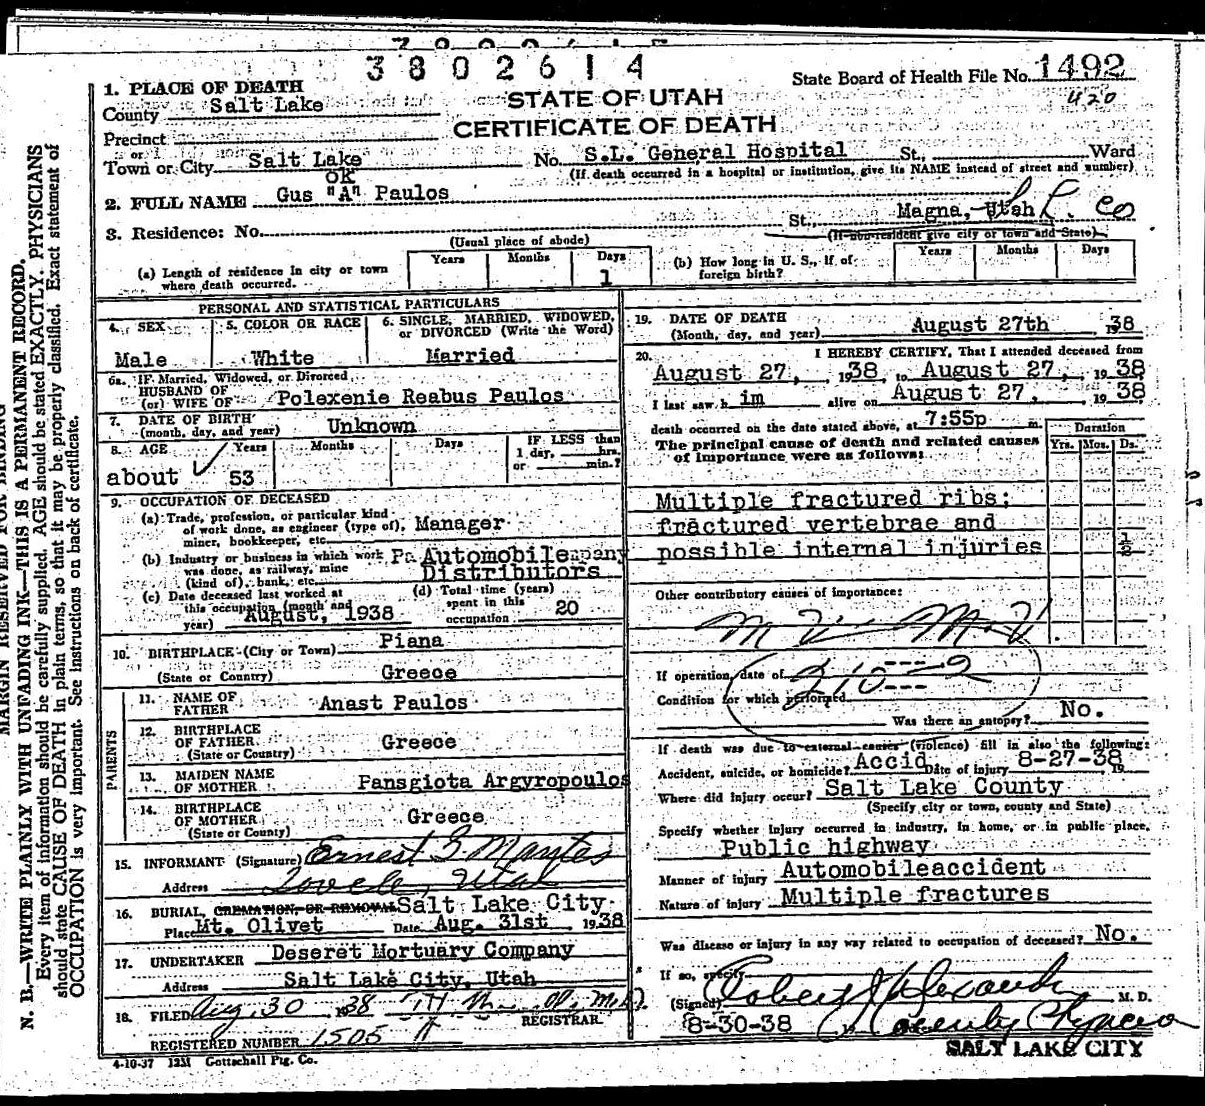 3802614
State Board of Health File No. 1492
420
1. PLACE OF DEATH
County Salt Lake
STATE OF UTAH
CERTIFICATE OF DEATH
Precinct
or
Town or City Salt Lake No. S.L. General Hospital St., Ward
(If death occurred in a hospital or institution, give its NAME instead of street and number)
OK
2. FULL NAME Gus "A" Paulos
3. Residence: No. St., Magna, Utah S. L. Co
(Usual place of abode) (If non-resident give city or town and State)
(a) Length of residence in city or town where death occurred. Years Months Days 1
(b) How long in U. S., if of foreign birth? Years Months Days
PERSONAL AND STATISTICAL PARTICULARS
4. SEX Male
5. COLOR OR RACE White
6. SINGLE, MARRIED, WIDOWED, or DIVORCED (Write the Word) Married
6a. IF Married, Widowed, or Divorced
HUSBAND OF
(or) WIFE OF Polexenie Reabus Paulos
7. DATE OF BIRTH
(month, day, and year) Unknown
8. AGE Years Months Days IF LESS than
1 day, hrs.
or min.?
about 53
9. OCCUPATION OF DECEASED
(a) Trade, profession, or particular kind
of work done, as engineer (type of), Manager
miner, bookkeeper, etc.
(b) Industry or business in which work
was done, as railway, mine
(kind of), bank, etc. Automobile
Distributors
(c) Date deceased last worked at
this occupation (month and
year) August, 1938
(d) Total time (years)
spent in this
occupation 20
10. BIRTHPLACE (City or Town) Piana
(State or Country) Greece
PARENTS
11. NAME OF
FATHER Anast Paulos
12. BIRTHPLACE
OF FATHER Greece
(State or Country)
13. MAIDEN NAME
OF MOTHER Pansgiota Argyropoulos
14. BIRTHPLACE
OF MOTHER Greece
(State or County)
15. INFORMANT (Signature) Ernest G Mantes
Address Tooele, Utah
16. BURIAL, CREMATION, OR REMOVAL Salt Lake City
Place Mt. Olivet Date Aug. 31st 1938
17. UNDERTAKER Deseret Mortuary Company
Address Salt Lake City, Utah
18. FILED Aug. 30 1938
REGISTRAR
REGISTERED NUMBER 1505
4-10-37 12M Gottschall Ptg. Co.
19. DATE OF DEATH
(Month, day, and year) August 27th, 1938
20. I HEREBY CERTIFY, That I attended deceased from
August 27, 1938, to August 27, 1938
I last saw h im alive on August 27, 1938
death occurred on the date stated above, at 7:55p m.
The principal cause of death and related causes
of importance were as follows:
Duration
Yrs. Mos. Ds.
Multiple fractured ribs;
fractured vertebrae and
possible internal injuries 1/2
Other contributory causes of importance:
If operation, date of
210 2
Condition for which performed
Was there an autopsy? No.
If death was due to external causes (violence) fill in also the following:
Accident, suicide, or homicide? Accid Date of injury 8-27-38, 19
Where did injury occur? Salt Lake County
(Specify city or town, county and State)
Specify whether injury occurred in industry, in home, or in public place.
Public highway
Manner of injury Automobileaccident
Nature of injury Multiple fractures
Was disease or injury in any way related to occupation of deceased? No.
If so, specify
(Signed) M. D.
8-30-38 County Physician
SALT LAKE CITY
MARGIN RESERVED FOR BINDING
N. B.—WRITE PLAINLY WITH UNFADING INK—THIS IS A PERMANENT RECORD.
Every item of information should be carefully supplied. AGE should be stated EXACTLY. PHYSICIANS
should state CAUSE OF DEATH in plain terms, so that it may be properly classified. Exact statement of
OCCUPATION is very important. See instructions on back of certificate.